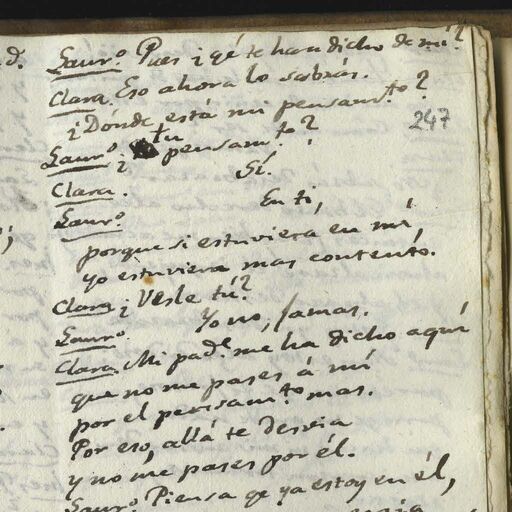 d.
Laur.º Pues ¿qé te han dicho de mi?
Clara. Eso ahora lo sabrás.
¿Dónde está mi pensam.to?
247
Laur.º ¿tu pensam.to?
Clara. Sí.
Laur.º En ti,
porque si estuviera en mí,
yo estuviera mas contento.
Clara ¿Vesle tú?
Laur.º Yo no, jamas.
Clara. Mi pad.e me ha dicho aquí
que no me pases á mí
por el pensam.to mas.
Por eso, allá te desvia
y no me pases por él.
Laur.º Piensa qe ya estoy en él,